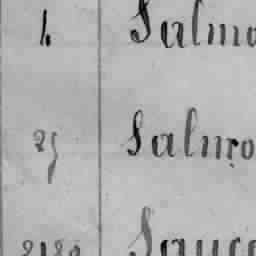 1. Salmo
25 Salmo
2180 Sauce